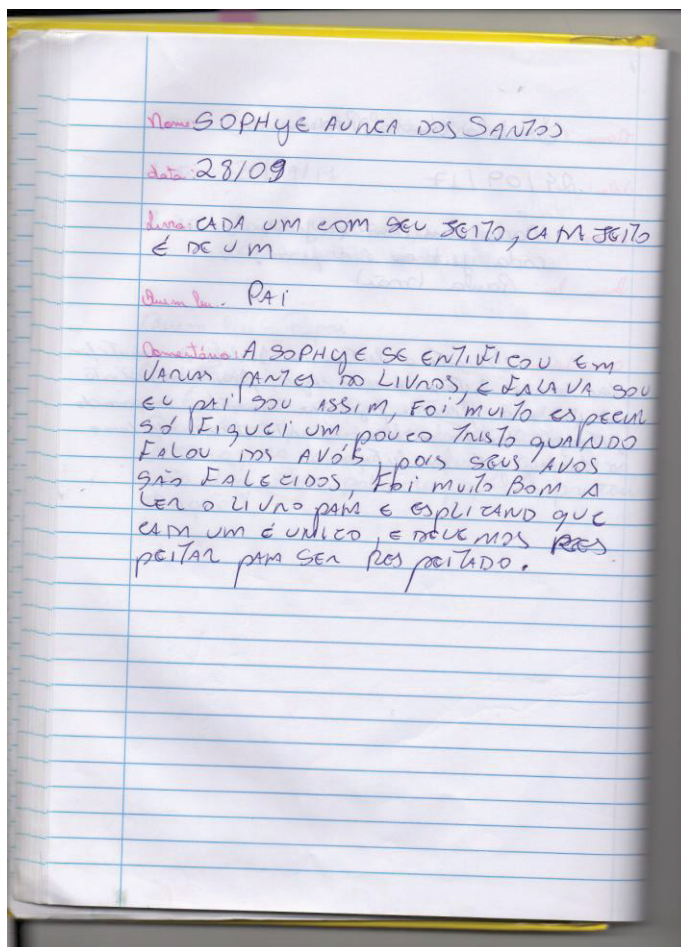 Nome: SOPHYE AUREA DOS SANTOS
data: 28/09
Livro: CADA UM COM SEU JEITO, CADA JEITO
É DE UM
Quem leu: PAI
Comentário: A SOPHYE SE ENTIFICOU EM
VARIAS PARTES DO LIVROS, E FALAVA SOU
EU PAI SOU ASSIM, FOI MUITO ESPECIAL
SÓ FIQUEI UM POUCO TRISTO QUANDO
FALOU DOS AVÓS, POIS SEUS AVOS
SÃO FALECIDOS, FOI MUITO BOM A
LER O LIVRO PARA E ESPLICANDO QUE
CADA UM É UNICO, E DEVEMOS RES
PEITAR PARA SER RESPEITADO.